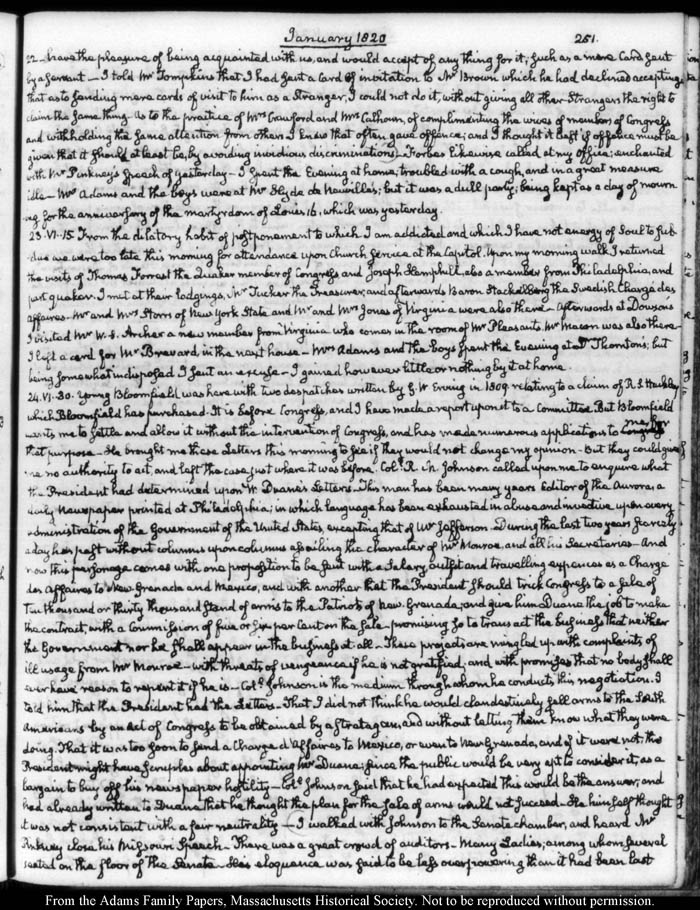 January 1820
251.
22 – have the pleasure of being acquainted with us, and would accept of any thing for it; such as a mere Card sent
by a servant – I told Mr Tompkins that I had sent a Card of invitation to Mr Brown which he had declined accepting
that as to sending mere cards of visit to him as a Stranger, I could not do it, without giving all other Strangers the right to
claim the same thing. As to the practice of Mrs Crawford and Mrs Calhoun, of complimenting the wives of members of Congress
and withholding the same attention from others I knew that often gave offence; and I thought it best if offence must be
given that it should at least be, by avoiding invidious discriminations – Forbes likewise called at my office; enchanted
with Mr Pinkney's Speech of yesterday – I spent the Evening at home; troubled with a cough, and in a great measure
idle – Mrs Adams and the boys were at Mr Hyde de Neuville's; but it was a dull party; being kept as a day of mourn
ing for the anniversary of the martyrdom of Louis 16. which was yesterday.
23. VI:15. From the dilatory habit of postponement to which I am addicted and which I have not energy of Soul to sub-
due we were too late this morning for attendance upon Church Service at the Capitol. Upon my morning walk I returned
the visits of Thomas Forrest the Quaker member of Congress and Joseph Hemphill, also a member from Philadelphia, and
part quaker. I met at their lodgings, Mr Tucker the Treasurer, and afterwards Baron Stackelberg the Swedish Chargé des
affaires. Mr and Mrs Storrs of New York State and Mr and Mrs Jones of Virginia were also there – Afterwards at Dowson's
I visited Mr W. S. Archer a new member from Virginia who comes in the room of Mr Pleasants. Mr Macon was also there –
I left a card for Mr Brevard, in the next house – Mrs Adams and the boys spent the Evening at Dr Thornton's; but
being somewhat indisposed I sent an excuse – I gained however little or nothing by it at home.
24. VI:30. Young Bloomfield was here with two despatches written by G. W. Erving in 1809 relating to a claim of R. S. Hackley
which Bloomfield has purchased. It is before Congress, and I have made a report upon it to a Committee. But Bloomfield
wants me to settle and allow it without the intervention of Congress, and has made numerous applications to me for
that purpose – He brought me these Letters this morning to see if they would not change my opinion – But they could give
me no authority to act, and left the case just where it was before. Coll. R. M. Johnson called upon me to enquire what
the President had determined upon W. Duane's Letters – This man has been many years Editor of the Aurora, a
daily Newspaper printed at Philadelphia; in which language has been exhausted in abuse and invective upon every
administration of the Government of the United States, excepting that of Mr Jefferson – During the last two years scarcely
a day has past without columns upon columns assailing the character of Mr Monroe, and all his Secretaries – And
now this personage comes with one proposition to be sent with a Salary, outfit and travelling expences as a Chargé
des Affaires to New Grenada and Mexico, and with another that the President should trick Congress to a sale of
Ten thousand or thirty thousand stand of arms to the Patriots of New Grenada, and give him Duane the job to make
the contract, with a Commission of five or six per Cent on the sale – promising so to transact the business that neither
the Government nor he shall appear in the business at all – These projects are mingled up with complaints of
ill usage from Mr Monroe – with threats of vengeance if he is not gratified, and with promises that no body shall
ever have reason to repent it if he is – Coll. Johnson is the medium through whom he conducts this negotiation. I
told him that the President had the Letters. That I did not think he would clandestinely sell arms to the South
Americans by an Act of Congress to be obtained by a stratagem, and without letting them know what they were
doing. That it was too soon to send a Chargé d'Affaires to Mexico, or even to New Grenada, and if it were not, the
President might have scruples about appointing Mr Duane; since the public would be very apt to consider it, as a
bargain to buy off his newspaper hostility – Coll. Johnson said that he had expected this would be the answer, and
had already written to Duane that he thought the plan for the sale of arms would not succeed – He himself thought
it was not consistent with a fair neutrality – I walked with Johnson to the Senate chamber, and heard Mr
Pinkney close his Missouri Speech – There was a great crowd of auditors – Many Ladies, among whom several
seated on the floor of the Senate – His eloquence was said to be less overpowering than it had been last
From the Adams Family Papers, Massachusetts Historical Society. Not to be reproduced without permission.